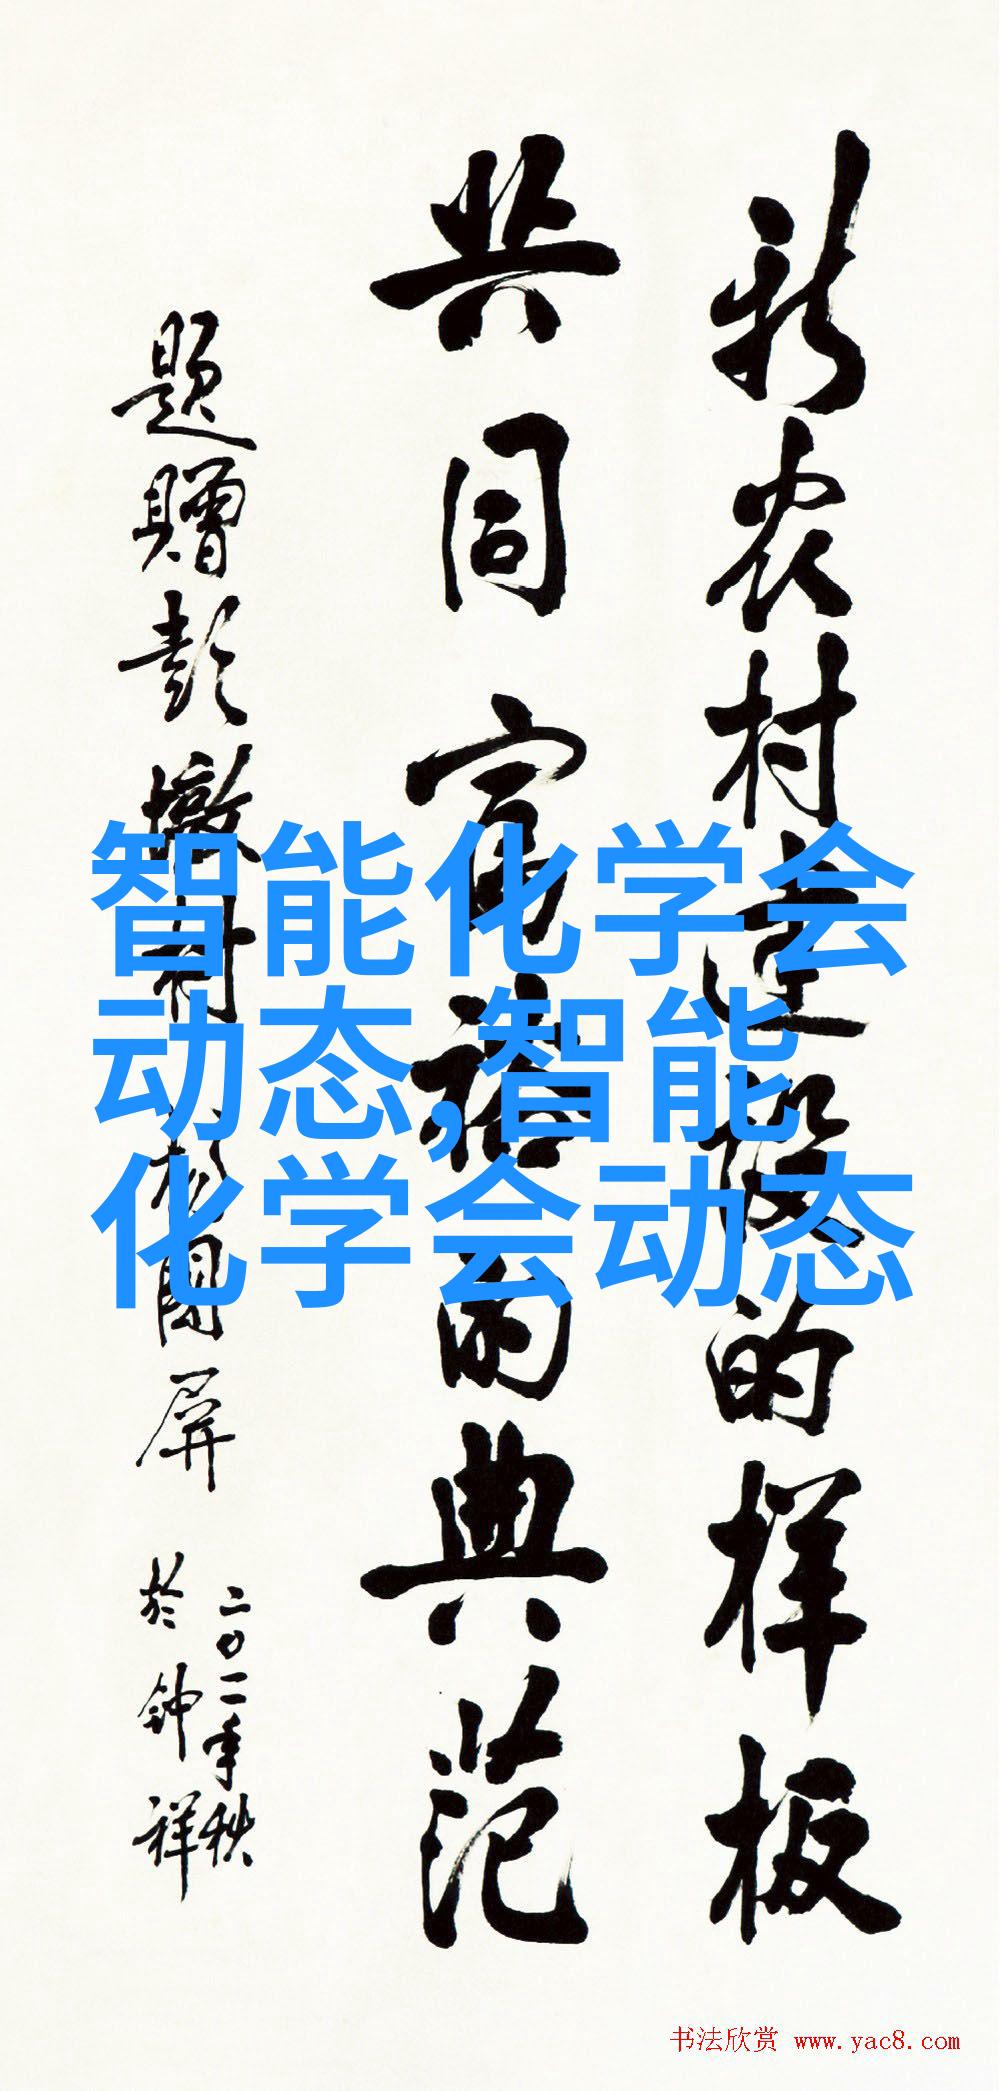 新农村建设的样板
共同富裕的典范
题赠彭墩村
屏
二0一一年秋
於钟祥
智能化学会
动态,智能
化学会动态
书法欣赏 www.yac8.com